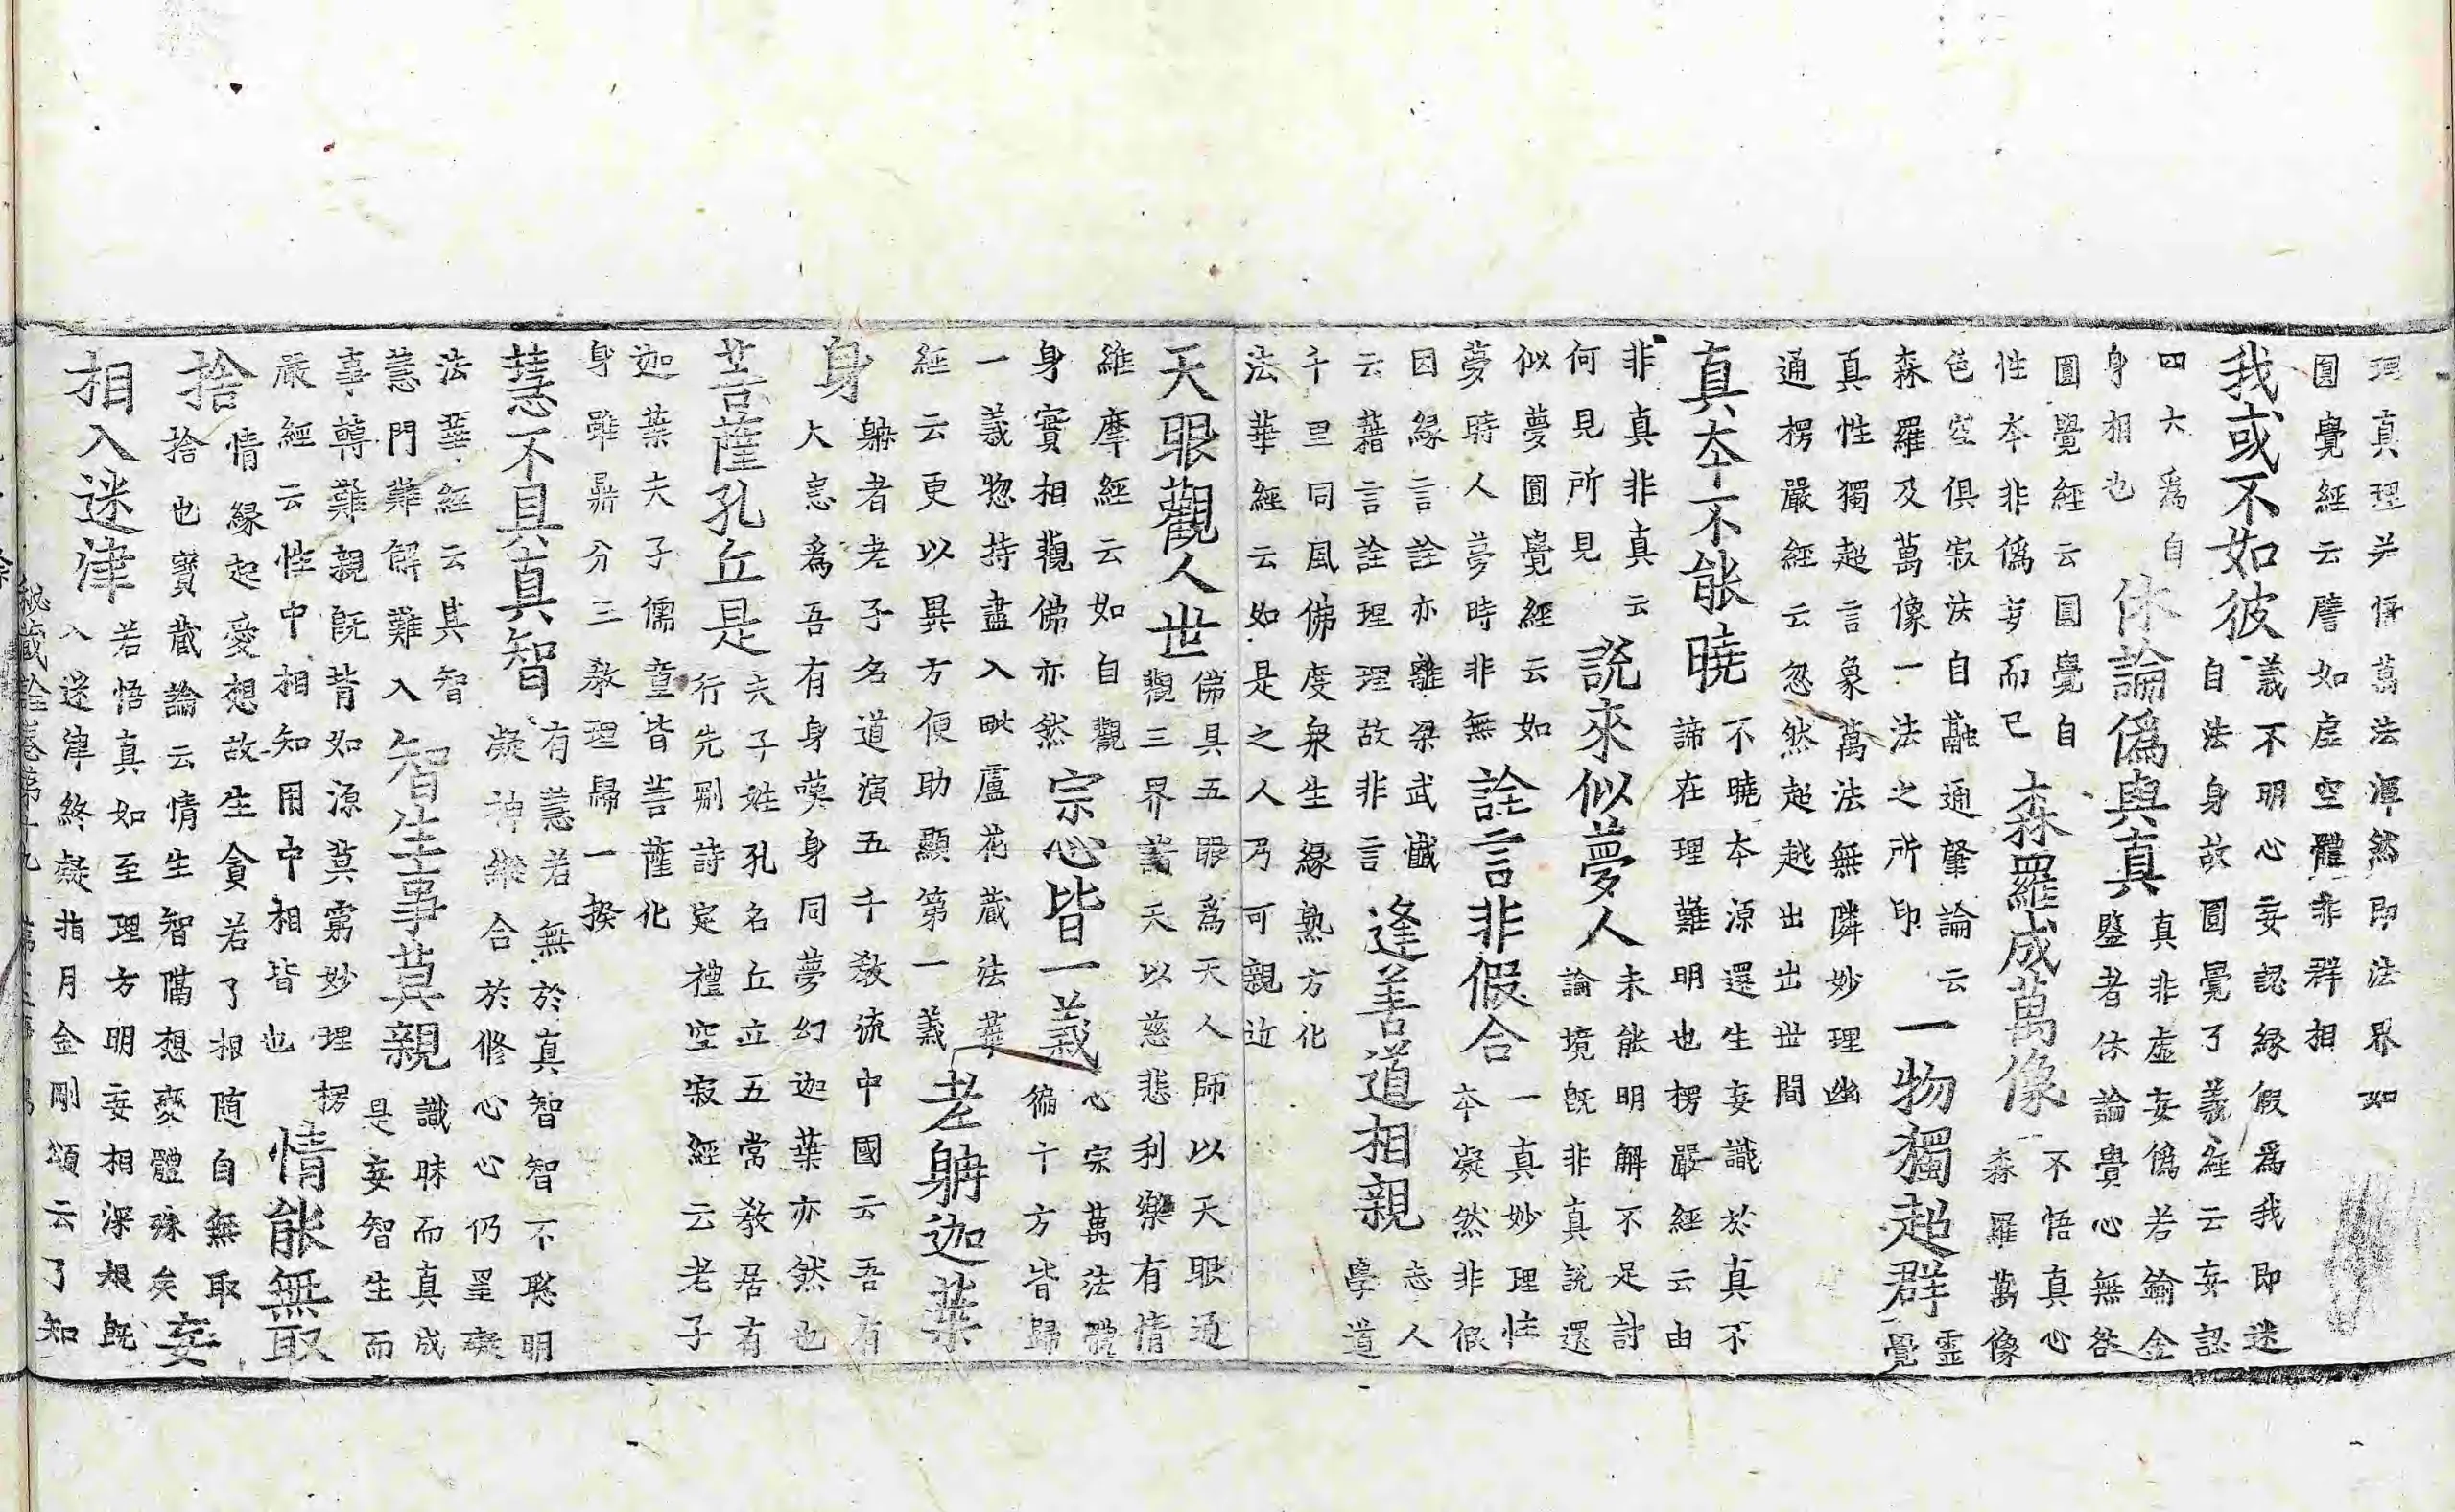 理真理并悟萬法渾然即法界如
圓覺經云譬如虛空體非群相
我或不如彼
義不明心妄認緣假爲我即迷
自法身故圓覺了義經云妄認
四大爲自
身相也
休論僞與真
真非虛妄僞若鍮金
鑒者休論貴心無咎
圓覺經云圓覺自
性本非僞而已
森羅成萬像
不悟真心
森羅萬像
色空俱寂泯自融通肇論云
森羅及萬像一法之所印
一物獨超群
靈
覺
真性獨超言象萬法無隣妙理幽
通楞嚴經云忽然超越出出世間
真本不能曉
不曉本源還生妄識於真不
諦在理難明也楞嚴經云由
非真非真云
何見所見
說來似夢人
未能明解不足討
論境既非真說還
似夢圓覺經云如
夢時人夢時非無
詮言非假合
一真妙理性
本凝然非假
因緣言詮亦離梁武懺
云藉言詮理理故非言
逢善道相親
志人
學道
千里同風佛度衆生緣熟方化
法華經云如是之人乃可親近
天眼觀人世
佛具五眼爲天人師以天眼通
觀三界諸天以慈悲利樂有情
維摩經云如自觀
身實相觀佛亦然
宗心皆一義
心宗萬法體
徧十方皆歸
一義惣持盡入毗盧花藏法華
經云更以異方便助顯第一義
老躭迦葉
身
躭者老子名道演五千教流中國云吾有
大患爲吾有身嘆身同夢幻迦葉亦然也
菩薩孔丘是
夫子姓孔名丘立五常教居有
行先刪詩定禮空寂經云老子
迦葉夫子儒童皆菩薩化
身雖鼎分三教理歸一揆
慧不具真智
有慧若無於真智智不聡明
凝神縱合於修心心仍罣礙
法華經云其智
慧門難解難入
智生事莫親
識昧而真成
是妄智生而
事轉難親既背如源莫窮妙理楞
嚴經云性中相知用中相皆也
情能無取
捨
情緣起愛想故生貪若了相随自無取
捨也寶藏論云情生智隔想變體殊矣
妄
相入迷津
若悟真如至理方明妄相深想既
入迷津終礙指月金剛頌云了知
秘藏詮卷第十九